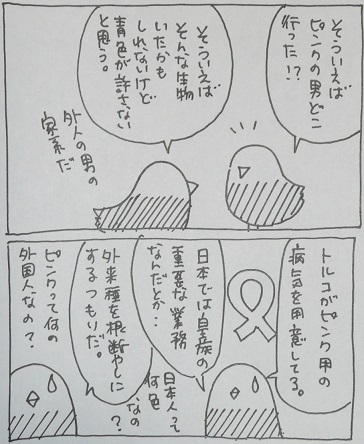 そういえば
ピンクの男どこ
行った!?
そういえば
そんな生物
いたかも
しれないけど
青色が許さない
と思う。
外人の男の
家系だ
トルコがピンク用の
病気を用意してる。
日本では皇族の
重要な業務
なんだとか…
日本人って
何色
なの?
外来種を根断やしに
するつもりだ。
ピンクって何の
外国人なの?